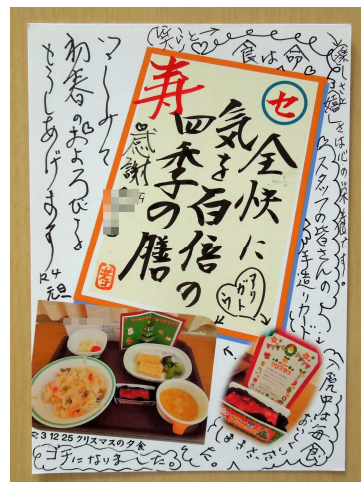 笑らと
食は命
楽しさと
嬉しさは心の栄養です。
スタッフの皆さんの
手造りカード
入院中は毎食
セ
全快に
気を百倍の
四季の膳
寿
感謝
アリ
ガト
ウ
つゝしみて
初春のおよろこびを
もうしあげます
R4
元旦
R3 12 25 クリスマスの夕食
ゴチになりました。